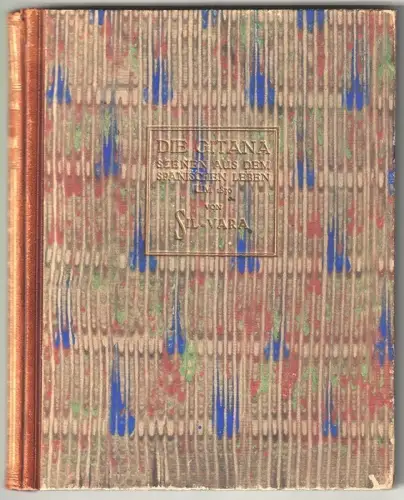 DIE GITANA
SZENEN AUS DEM
SPANISCHEN LEBEN
UM
VON
SIL-VARA